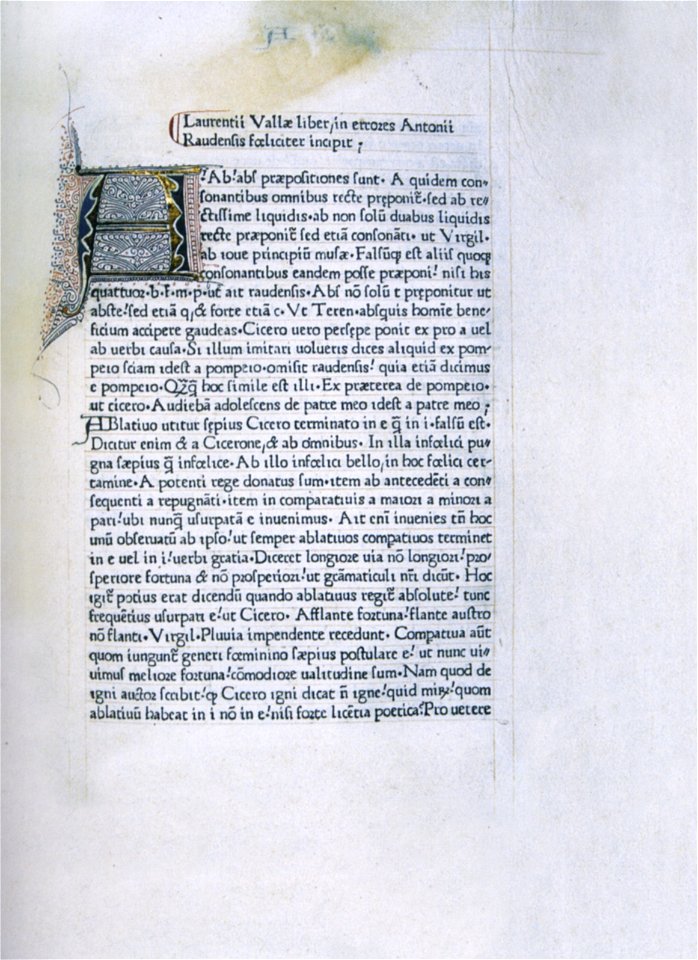 Laurentii Vallæ liber/in errores Antonii
Raudensis fœliciter incipit ;
A Ab abs præpositiones sunt· A quidem con
sonantibus omnibus recte pręponit̃·sed ab re
ctissime liquidis·ab non solũ duabus liquidis
recte præponit̃ sed etiã consonãti· ut Virgil·
ab ioue principiũ musæ· Falsũq est aliis quoq
consonantibus eandem posse præponi nisi his
quattuor·b·f·m·p·ut ait raudensis· Abs nõ solũ t pręponitur ut
abste·sed etiã q/& forte etiã c· Vt Teren·absquis homĩe bene
ficium accipere gaudeas·Cicero uero persępe ponit ex pro a uel
ab uerbi causa·Si illum imitari uolueris dices aliquid ex pom
peio sciam idest a pompeio·omisit raudensis! quia etiã dicimus
e pompeio· hoc simile est illi·Ex præterea de pompeio·
ut cicero·Audiebã adolescens de patre meo idest a patre meo ;
ABlatiuo utitur sępius Cicero terminato in e q̃ in i·falsũ est·
Dicitur enim & a Cicerone/& ab omnibus· In illa infœlici pu
gna sæpius q̃ infœlice·Ab illo infœlici bello/in hoc fœlici cer
tamine·A potenti rege donatus sum·item ab antecedẽti a con
sequenti a repugnãti·item in comparatiuis a maiori a minori a
pari!ubi nunq̃ usurpatã e inuenimus· Ait eni inuenies tñ hoc
unũ obseruatũ ab ipso!ut semper ablatiuos compatiuos terminet
in e uel in i!uerbi gratia·Diceret longiore uia nõ longiori!pro
speriore fortuna & nõ prosperiori!ut grãmaticuli nr̃i dicũt· Hoc
igit̃ potius erat dicendũ quando ablatiuus regit̃ absolute! tunc
frequẽtius usurpari e!ut Cicero· Afflante fortuna!flante austro
nõ flanti·Virgil·Pluuia impendente recedunt· Compatiua aũt
quom iungunt̃ generi fœminino sæpius postulare e! ut nunc ui
uimus meliore fortuna!cõmodiore ualitudine sum·Nam quod de
igni auctor scribit!q Cicero igni dicat ñ igne!quid mir!quom
ablatiuũ habeat in i nõ in e!nisi forte licẽtia poetica?Pro uetere